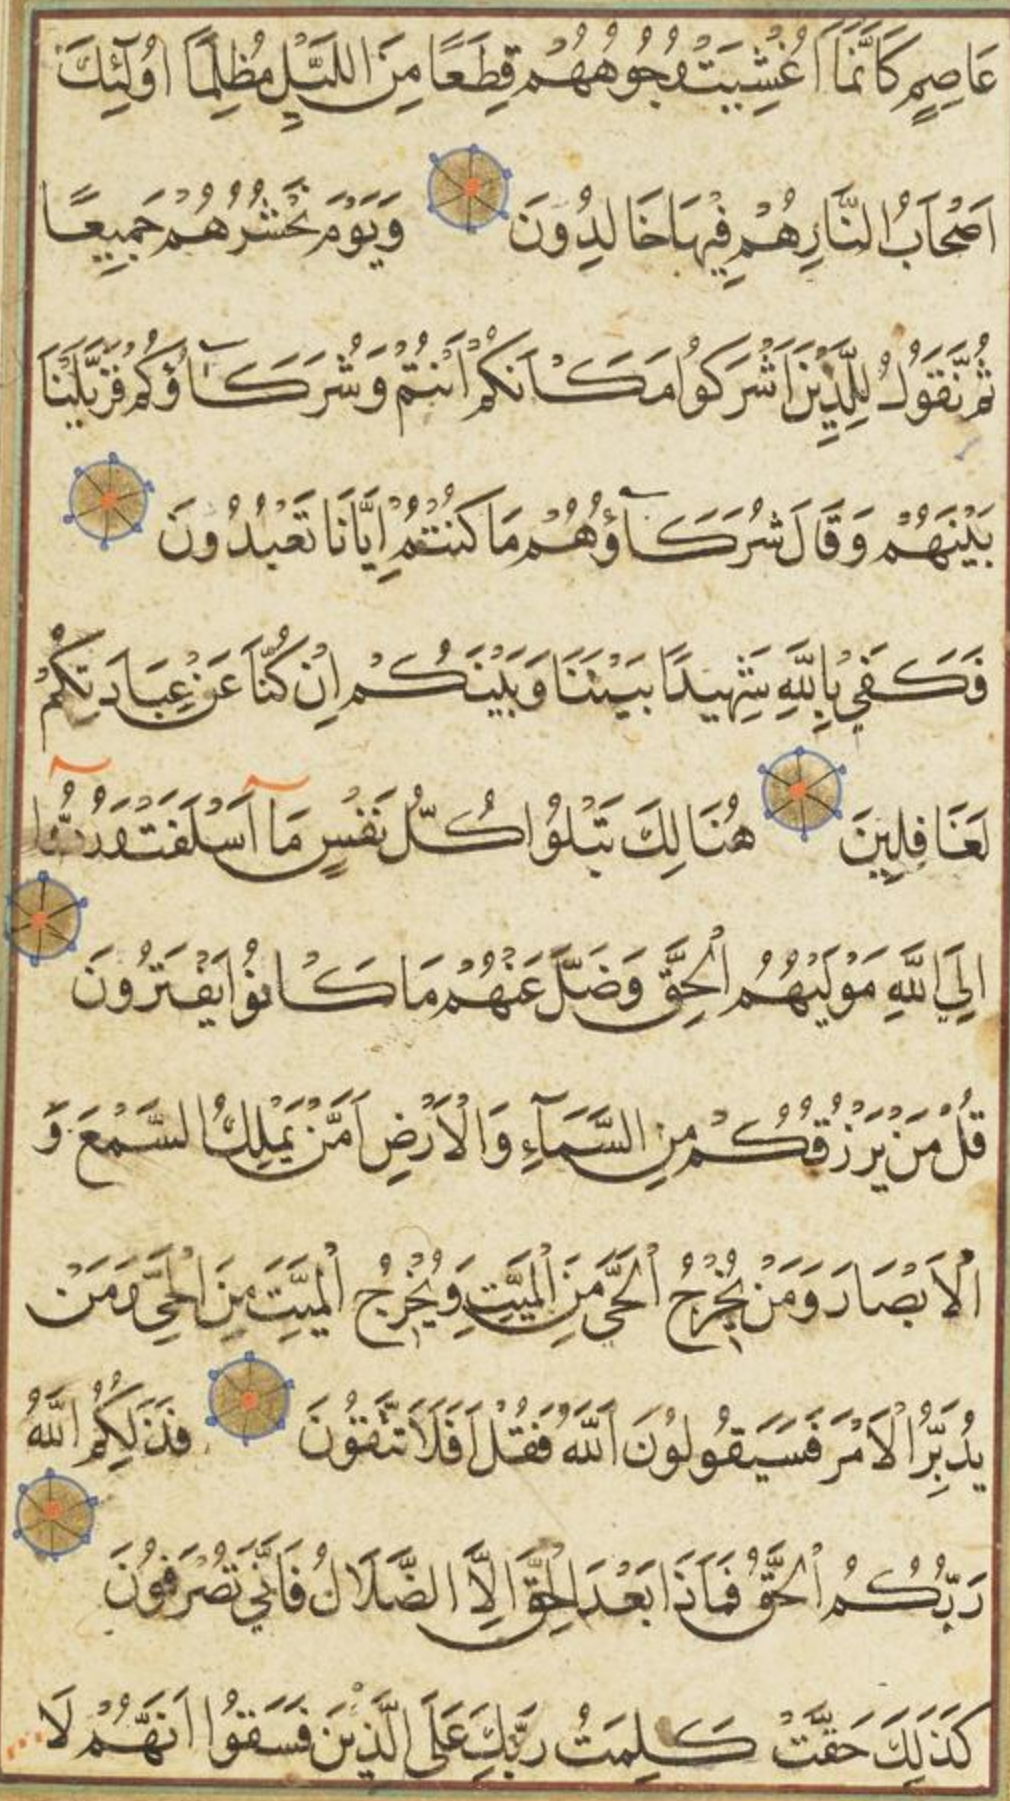 عَاصِمٍ كَاَنَّمَاۤ اُغْشِيَتْ وُجُوهُهُمْ قِطَعًا مِنَ اللَّيْلِ مُظْلِمًا اُولٰۤئِكَ
اَصْحَابُ النَّارِ هُمْ فِيْهَا خَالِدُونَ وَيَوْمَ نَحْشُرُهُمْ جَمِيعًا
ثُمَّ نَقُولُ لِلَّذِينَ اَشْرَكُوا مَكَانَكُمْ اَنْتُمْ وَشُرَكَاۤؤُكُمْ فَزَيَّلْنَا
بَيْنَهُمْ وَقَالَ شُرَكَاۤؤُهُمْ مَا كُنْتُمْ اِيَّانَا تَعْبُدُونَ
فَكَفٰي بِاللّٰهِ شَهِيدًا بَيْنَنَا وَبَيْنَكُمْ اِنْ كُنَّا عَنْ عِبَادَتِكُمْ
لَغَافِلِينَ هُنَالِكَ تَبْلُوا كُلُّ نَفْسٍ مَاۤ اَسْلَفَتْ وَرُدُّوۤا
اِلَي اللّٰهِ مَوْلٰيهُمُ الْحَقِّ وَضَلَّ عَنْهُمْ مَا كَانُوْا يَفْتَرُونَ
قُلْ مَنْ يَرْزُقُكُمْ مِنَ السَّمَاۤءِ وَالْاَرْضِ اَمَّنْ يَمْلِكُ السَّمْعَ وَ
الْاَبْصَارَ وَمَنْ يُخْرِجُ الْحَيَّ مِنَ الْمَيِّتِ وَيُخْرِجُ الْمَيِّتَ مِنَ الْحَيِّ وَمَنْ
يُدَبِّرُ الْاَمْرَ فَسَيَقُولُونَ اللّٰهُ فَقُلْ اَفَلَا تَتَّقُونَ فَذٰلِكُمُ اللّٰهُ
رَبُّكُمُ الْحَقُّ فَمَاذَا بَعْدَ الْحَقِّ اِلَّا الضَّلَالُ فَاَنّٰي تُصْرَفُونَ
كَذٰلِكَ حَقَّتْ كَلِمَتُ رَبِّكَ عَلَي الَّذِينَ فَسَقُوا اَنَّهُمْ لَا